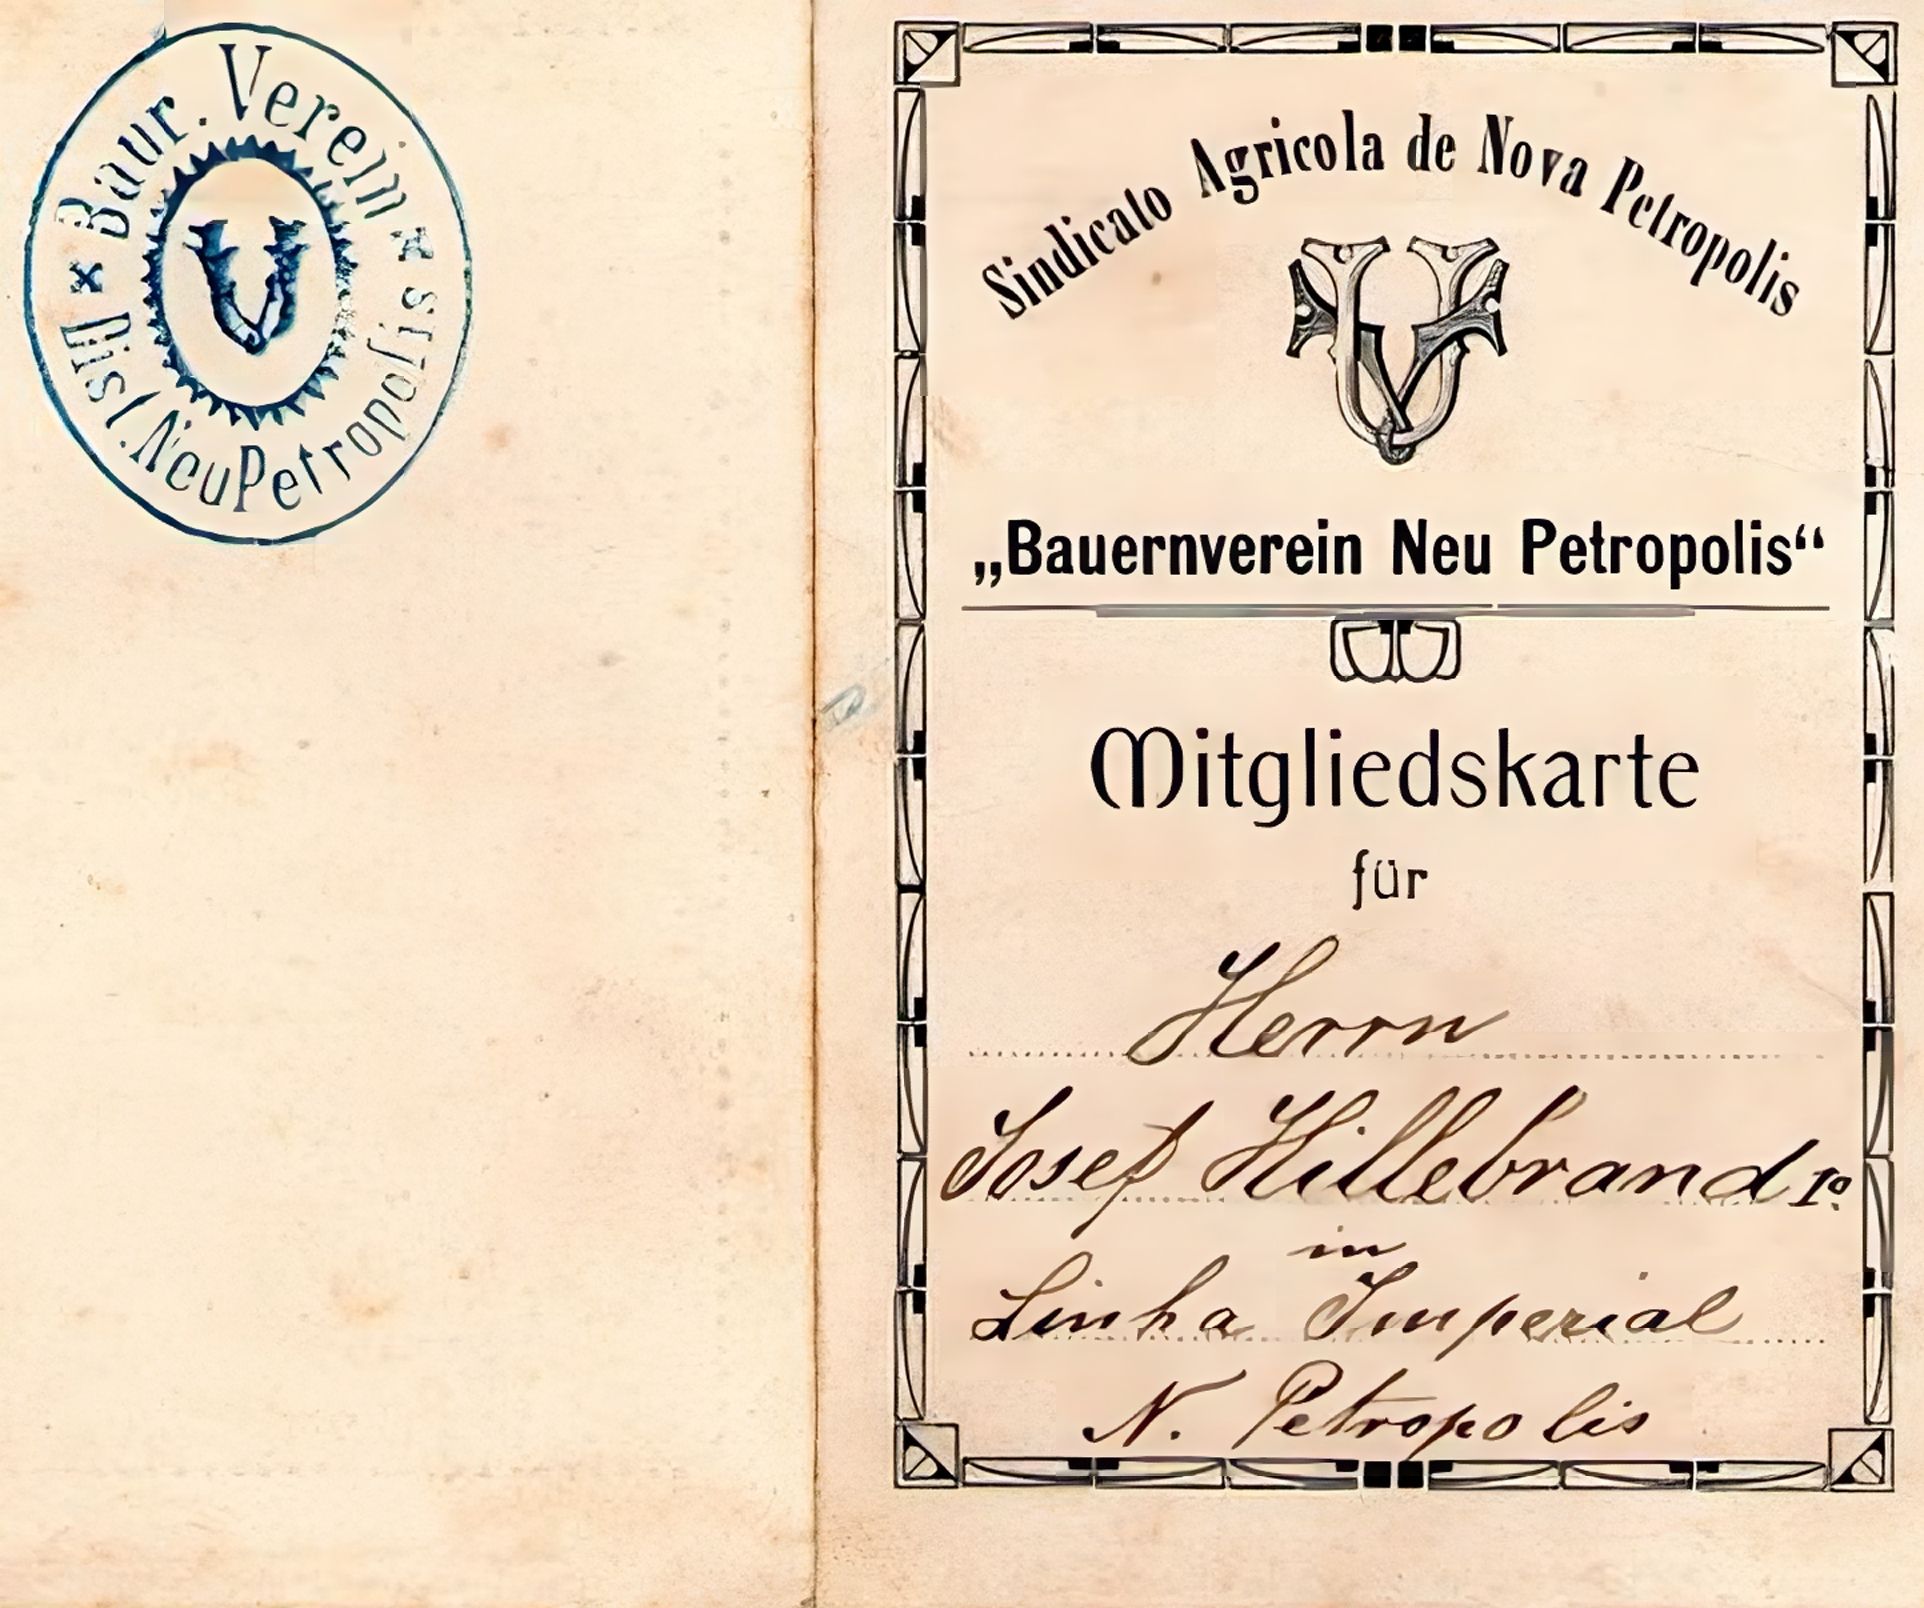 Baur. Verein
Distr. Neu Petropolis
Sindicato Agricola de Nova Petropolis
„Bauernverein Neu Petropolis“
Mitgliedskarte
für
Herrn
Josef Hillebrand Iº.
in
Linha Imperial
N. Petropolis